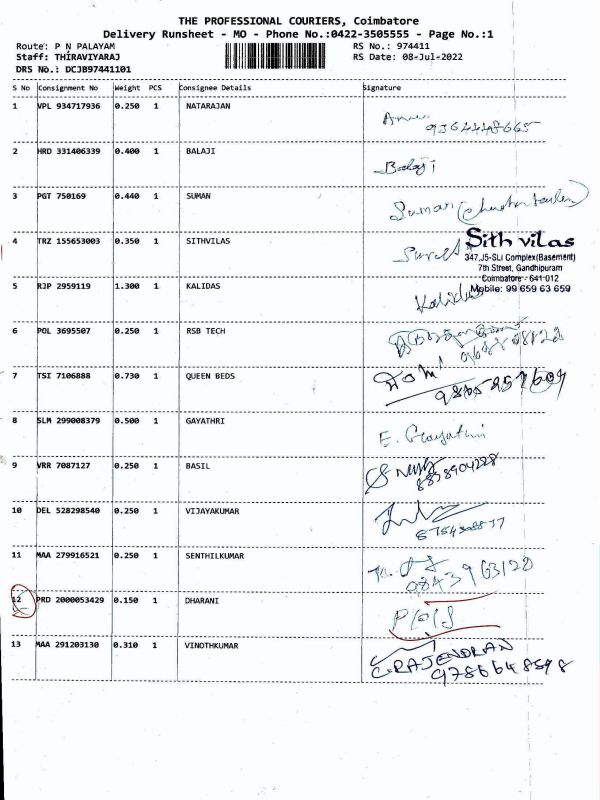 THE PROFESSIONAL COURIERS, Coimbatore
Delivery Runsheet - MO - Phone No.:0422-3505555 - Page No.:1
Route: P N PALAYAM RS No.: 974411
Staff: THIRAVIYARAJ RS Date: 08-Jul-2022
DRS No.: DCJB97441101
S No Consignment No Weight PCS Consignee Details Signature
1 VPL 934717936 0.250 1 NATARAJAN
9364448665
2 HRD 331406339 0.400 1 BALAJI
Balaji
3 PGT 750169 0.440 1 SUMAN
Suman
4 TRZ 155653003 0.350 1 SITHVILAS
Sith vilas
347,J5-SLI Complex(Basement)
7th Street, Gandhipuram
Coimbatore - 641 012
Mobile: 99 659 63 659
5 RJP 2959119 1.300 1 KALIDAS
Kalidas
6 POL 3695507 0.250 1 RSB TECH
7 TSI 7106888 0.730 1 QUEEN BEDS
8 SLM 299008379 0.500 1 GAYATHRI
E. Gayathri
9 VRR 7087127 0.250 1 BASIL
8838904228
10 DEL 528298540 0.250 1 VIJAYAKUMAR
11 MAA 279916521 0.250 1 SENTHILKUMAR
12 PRD 2000053429 0.150 1 DHARANI
13 MAA 291203130 0.310 1 VINOTHKUMAR
C.RAJENDRAN
9786648598